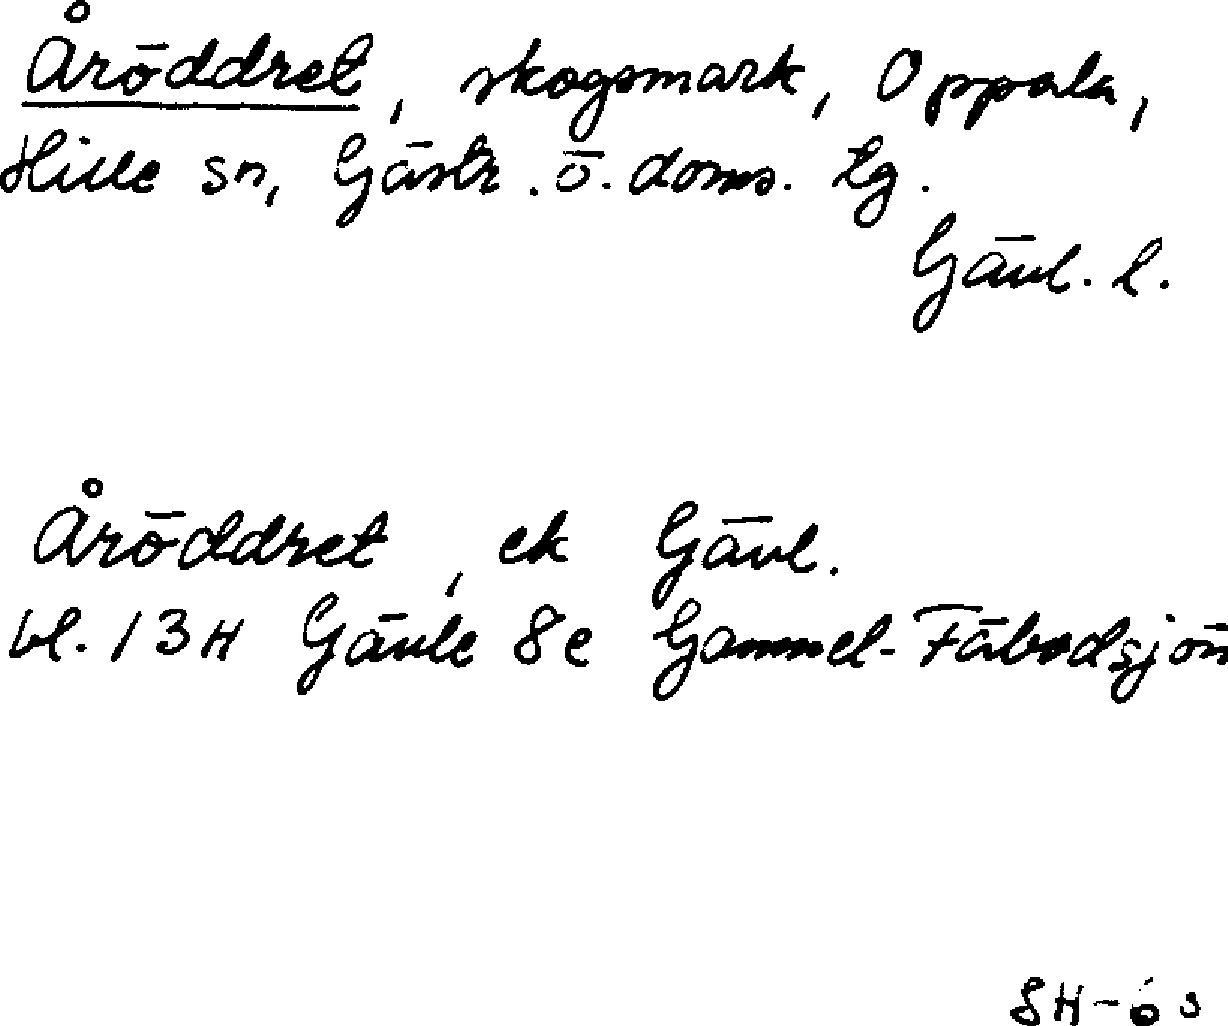 Åröddret, skogsmark, Oppala,
Hille sn, Gästr. ö. doms. tg.
Gävl. l.
Åröddret, ek Gävl.
bl. 13H Gävle 8e Gammel-Fäbodsjön
SH-63